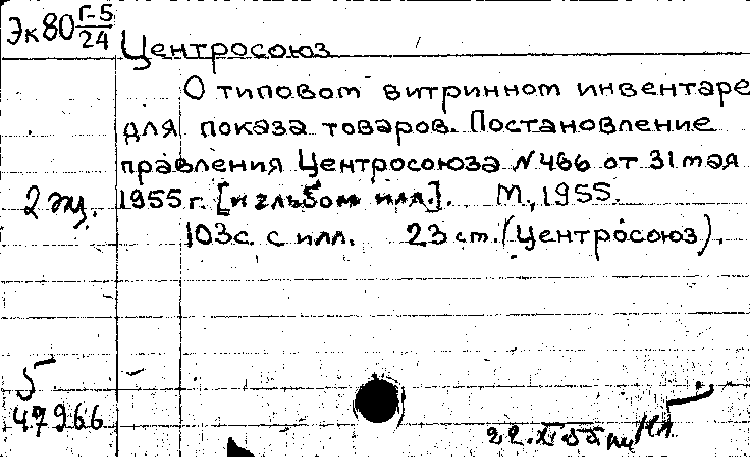 Эк80 Г-5/24
Центросоюз
О типовом витринном инвентаре
для показа товаров. Постановление
правления Центросоюза №466 от 31 мая
2 экз. 1955 г. [и альбом илл.]. М., 1955.
103с. с илл. 23 см. (Центросоюз).
Б
47966
22.XI.55